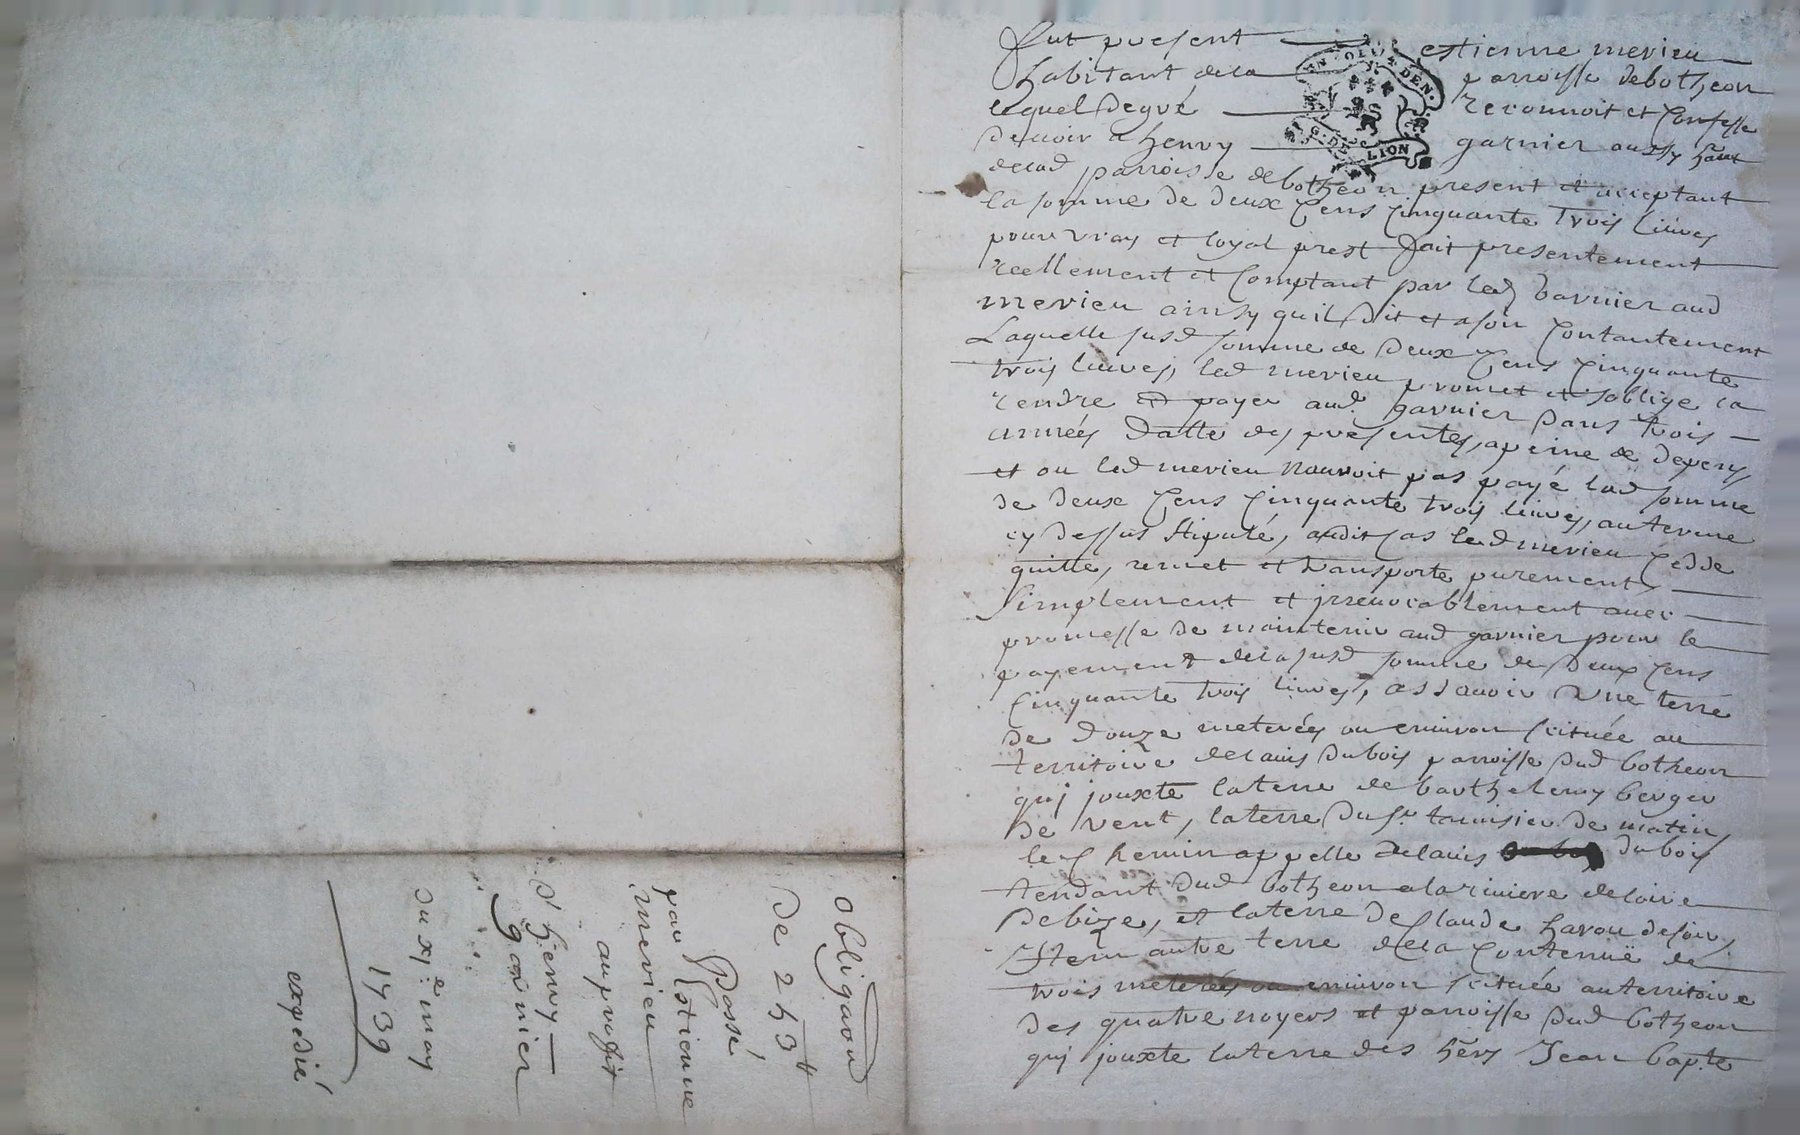 fut present estienne merieu
habitant dela parroisse debotheon
lequel degré reconnoit et Confesse
devoir a henry garnier aussy hãnt
delad parroisse debotheon present et acceptant
la somme de deux Cens Cinquante trois livres
pour vray et loyal prest fait presentement
reellement et Comptant par led garnier aud
merieu ainsy quil dit et ason Contantement
Laquelle susd somme de deux Cens Cinquante
trois livres, led merieu promet et soblige la
rendre et payer aud garnier dans trois
années datte des presentes, apeine de depens,
et ou led merieu nauroit pas payé lad somme
de deux Cens Cinquante trois livres, auterme
cy dessus stipulé, audit Cas led merieu Cedde
quitte, remet et transporte purement
simplement et jrrevocablement avec
promesse de maintenir aud garnier pour le
payement delasusd somme de deux Cens
Cinquante trois livres, assavoir une terre
de douze meterées ou environ scituée au
territoire delavis dubois parroisse dud botheon
quj jouxte laterre de barthelemy berger
de vent, laterre du sr. tamisier de matin,
le Chemin appellé delavis dubois
tendant dud botheon alariviere deloire
debize, et laterre de Claude havou desoir,
Jtem autre terre dela Contenuë de
trois meterées ou environ scituée auterritoire
des quatre noyers et parroisse dud botheon
quj jouxte laterre des hers Jean bapte
GEN. DE LION
Obligaõn
De 253 lt
Passé
par Estienne
merieu
auprofit
d'henry
garnier
du xje may
1739
expedié